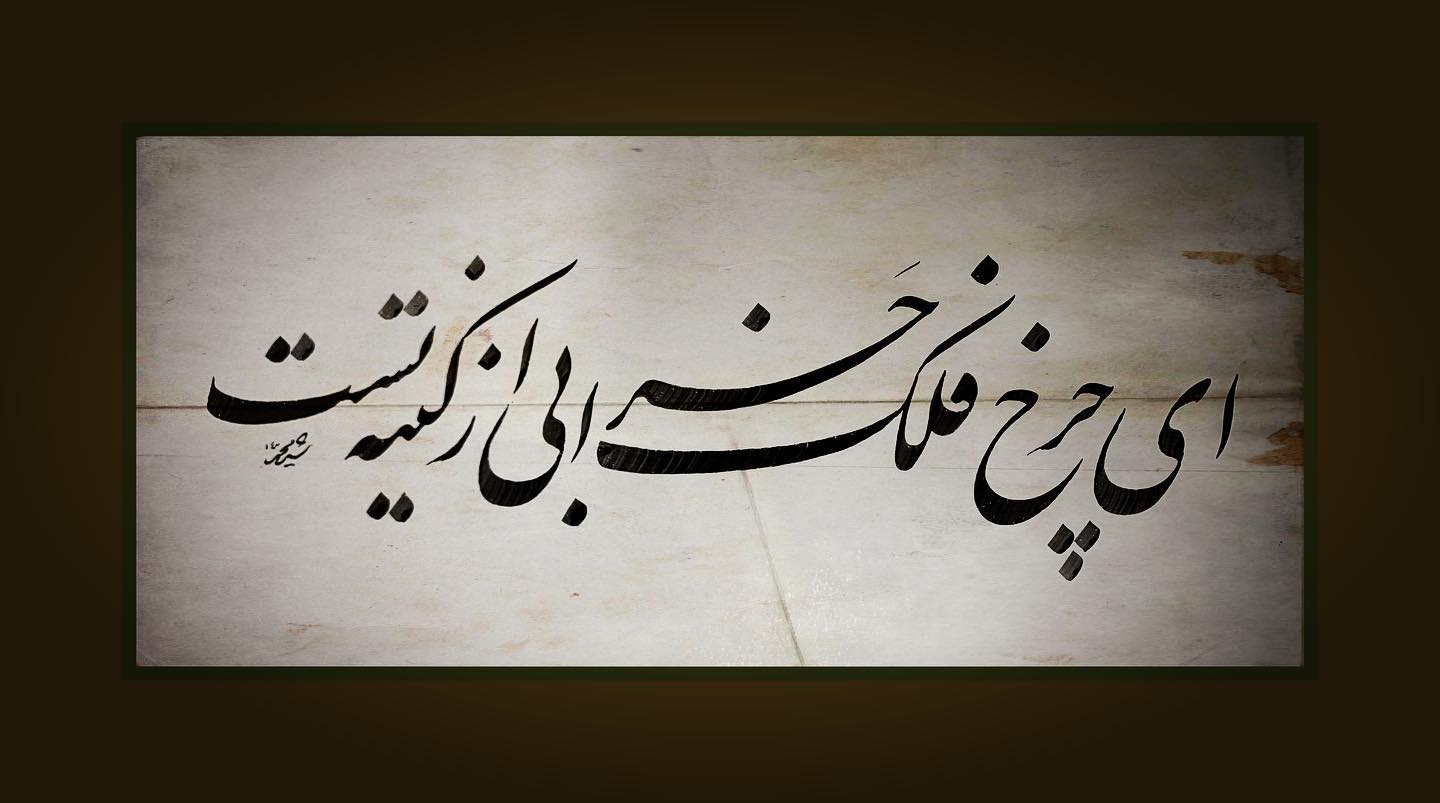 ای چرخ فلک خرابی از کینه تست